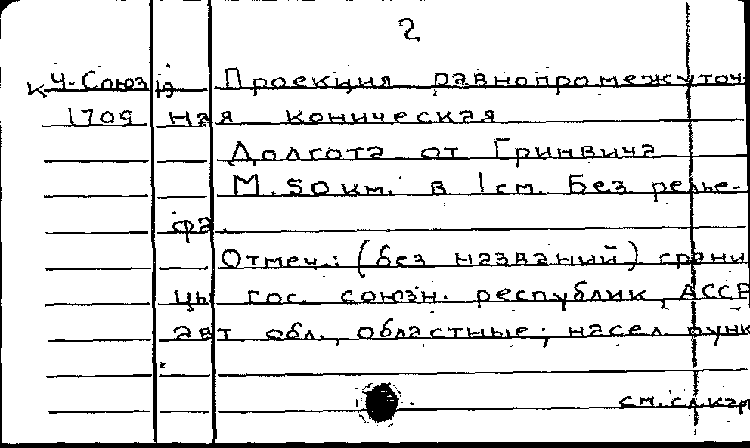 2
К Ч-Союз 12 Проекция равнопромежуточ
1709 ная коническая
Долгота от Гринвича
М. 50 км. в 1 см. Без релье-
фа.
Отмеч.: (без названий) грани
цы гос. союзн. республик, АССР
авт обл., областные; насел. пунк
см. сл. карт